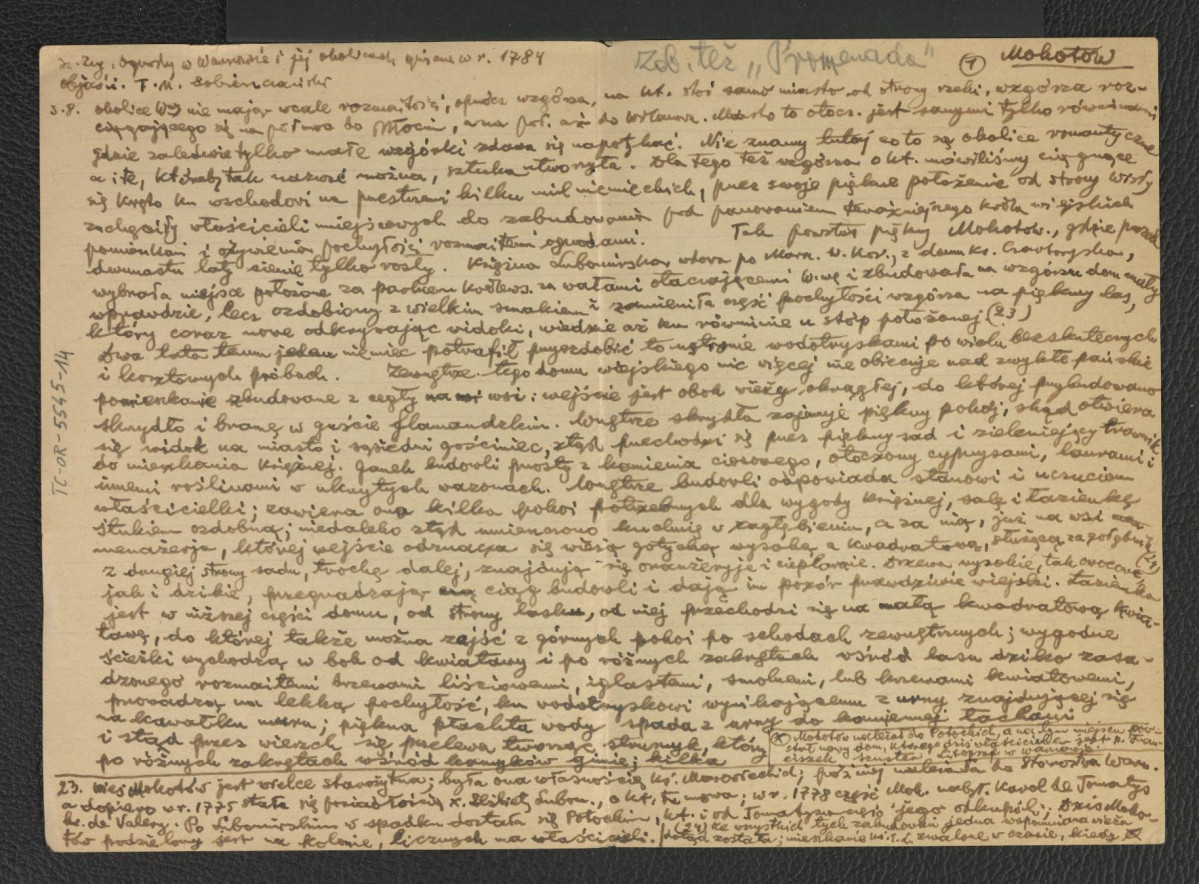 Sz. Zug. Ogrody w Warszawie i jej okolicach opisane w r. 1784
Zob. też „Promenada"
1
Mokotów
objaśń. F. M. Sobieszczański
s. 8. okolice W-y nie mając wcale rozmaitości, oprócz wzgórza, na kt. stoi samo miasto od strony rzeki, wzgórza roz-
ciągającego się na północ do Młocin, a na poł. aż do Wilanowa. Miasto to otocz. jest samymi tylko równinami
gdzie zaledwie tylko małe wzgórki zdarza się napotykać. Nie znamy tutaj co to są okolice romantyczne
a i te, któreby tak nazwać można, sztuka utworzyła. Dla tego też wzgórza o kt. mówiliśmy ciągnące
się kręto ku wschodowi na przestrzeni kilku mil niemieckich, przez swoje piękne położenie od strony Wisły
zachęciły właścicieli miejscowych do zabudowania pod panowaniem teraźniejszego króla wiejskich
pomieszkań i ożywienia pochyłości rozmaitemi ogrodami. Tak powstał piękny Mokotów, gdzie przed
dwunastu laty sienie tylko rosły. Księżna Lubomirska, wdowa po Marsz. w. Kor., z domu ks. Czartoryska,
wybrała miejsce położone za parkiem królews. za wałami otaczającemi W-wę i zbudowała na wzgórzu dom mały
wprawdzie, lecz ozdobiony z wielkim smakiem i zamieniła część pochyłości wzgórza na piękny las,
który coraz nowe odkrywając widoki, wiedzie aż ku równinie u stóp położonej (23)
Dwa lata temu jeden niemiec potrafił przyozdobić to ustronie wodotryskami po wielu bezskutecznych
i kosztownych próbach. Zewnątrz tego domu wiejskiego nic więcej nie obiecuje nad zwykłe pańskie
pomieszkanie zbudowane z cegły na wsi: wejście jest obok wieży okrągłej, do której przybudowano
skrzydło i bramę w guście flamandzkim. Wnętrze skrzydła zajmuje piękny pokój, skąd otwiera
się widok na miasto i sąsiedni gościniec, stąd przechodzi się przez piękny sad i zieleniejący trawnik
do mieszkania księżnej. Ganek budowli prosty z kamienia ciosowego, otoczony cyprysami, laurami i
innemi roślinami w ukrytych wazonach. Wnętrze budowli odpowiada stanowi i uczuciom
właścicielki; zawiera ona kilka pokoi potrzebnych dla wygody księżnej, salę i łazienkę
stiukiem ozdobną; niedaleko stąd umieszczono kuchnię w zagłębieniu, a za nią, już na wsi
menażerja, której wejście odznacza się wieżą gotycką wysoką a kwadratową, służącą za gołębnik (24)
z drugiej strony sadu, trochę dalej, znajdują się oranżeryje i cieplarnie. Drzewa wysokie, tak owocowe
jak i dzikie, przegradzają ciąg budowli i dają im pozór prawdziwie wiejski. Łazienka
jest w niższej części domu, od strony lasku, od niej przechodzi się na małą kwadratową kwia-
tową, do której także można zejść z górnych pokoi po schodach zewnętrznych; wygodne
ścieżki wychodzą w bok od kwiatowy i po różnych zakrętach wśród lasu dziko zasa-
dzonego rozmaitemi drzewami liściowemi, iglastemi, smolnemi, lub krzewami kwiatowemi,
prowadzą na lekką pochyłość, ku wodotryskowi wynikającemu z urny znajdującej się
na kawałku muru; piękna płachta wody spada z urny do kamiennej
i stąd przez wierzch się przelewa tworząc strumyk, który
po różnych zakrętach wśród kamyków ginie; kilka
(x) Mokotów należał do Potockich, a na tém miejscu pow-
stał nowy dom, którego dziś właścicielem jest p. Fran-
ciszek Szuster, litograf w Warszawie.
23. Wieś Mokotów jest wielce starożytna; była ona własnością ks. Mazowieckich; później należała do Starostwa Warsz.
a dopiero w r. 1775 stała się posiadłością x. Elżbiety Lubom., o kt. tu mowa; w r. 1778 część Mok. nabył Karol de Tomatys
hr. de Valery. Po Lubomirskim w spadku dostała się Potockim, kt. i od Tomatysowskiego jego odkupili; Dziś Moko-
tów podzielony jest na kolonie, licznych ma właścicieli.
(24) ze wszystkich tych zabudowań jedna wspomniana wieża
dotąd została; mieszkanie zwalone w czasie, kiedy
TC-OR-5545-14